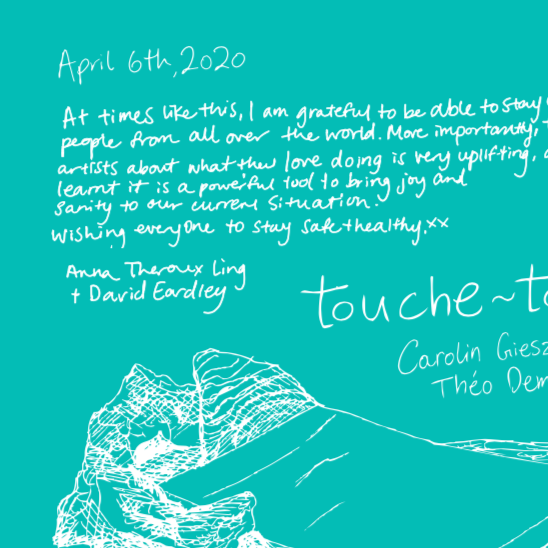 April 6th, 2020
At times like this, I am grateful to be able to stay
people from all over the world. More importantly,
artists about what they love doing is very uplifting,
learnt it is a powerful tool to bring joy and
sanity to our current situation.
Wishing everyone to stay safe + healthy. xx
Anna Theroux Ling
+ David Eardley
touche~to
Carolin Giesz
Théo Dem